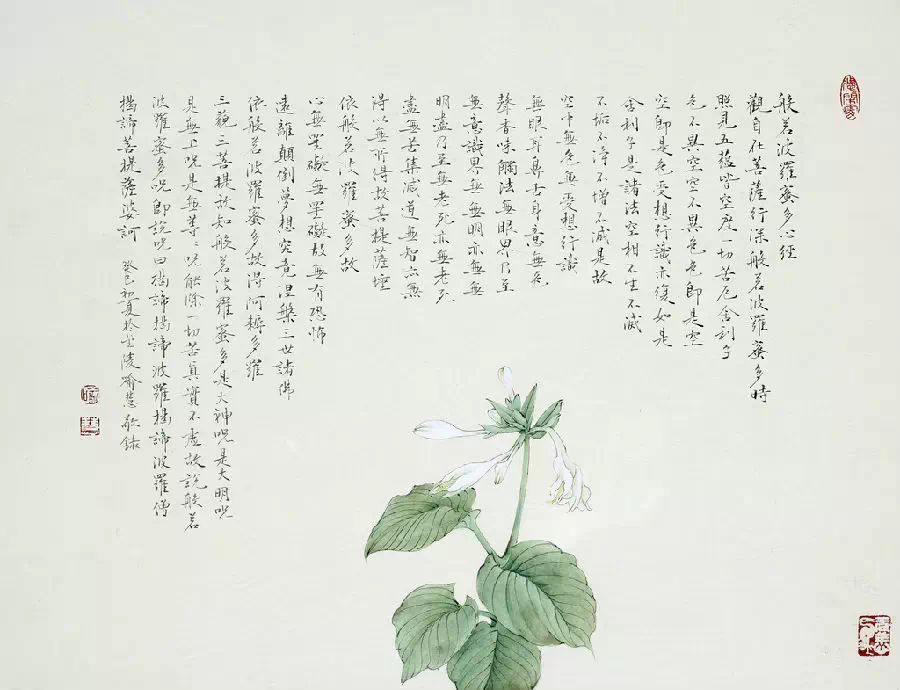 般若波羅蜜多心經
觀自在菩薩行深般若波羅蜜多時
照見五蘊皆空度一切苦厄舍利子
色不異空空不異色色即是空
空即是色受想行識亦復如是
舍利子是諸法空相不生不滅
不垢不淨不增不減是故
空中無色無受想行識
無眼耳鼻舌身意無色
聲香味觸法無眼界乃至
無意識界無無明亦無無
明盡乃至無老死亦無老死
盡無苦集滅道無智亦無
得以無所得故菩提薩埵
依般若波羅蜜多故
心無罣礙無罣礙故無有恐怖
遠離顛倒夢想究竟涅槃三世諸佛
依般若波羅蜜多故得阿耨多羅
三藐三菩提故知般若波羅蜜多是大神呪是大明呪
是無上呪是無等〻呪能除一切苦真實不虛故說般若
波羅蜜多呪即說呪曰揭諦揭諦波羅揭諦波羅僧
揭諦菩提薩婆訶 癸巳初夏於金陵喻慧敬錄